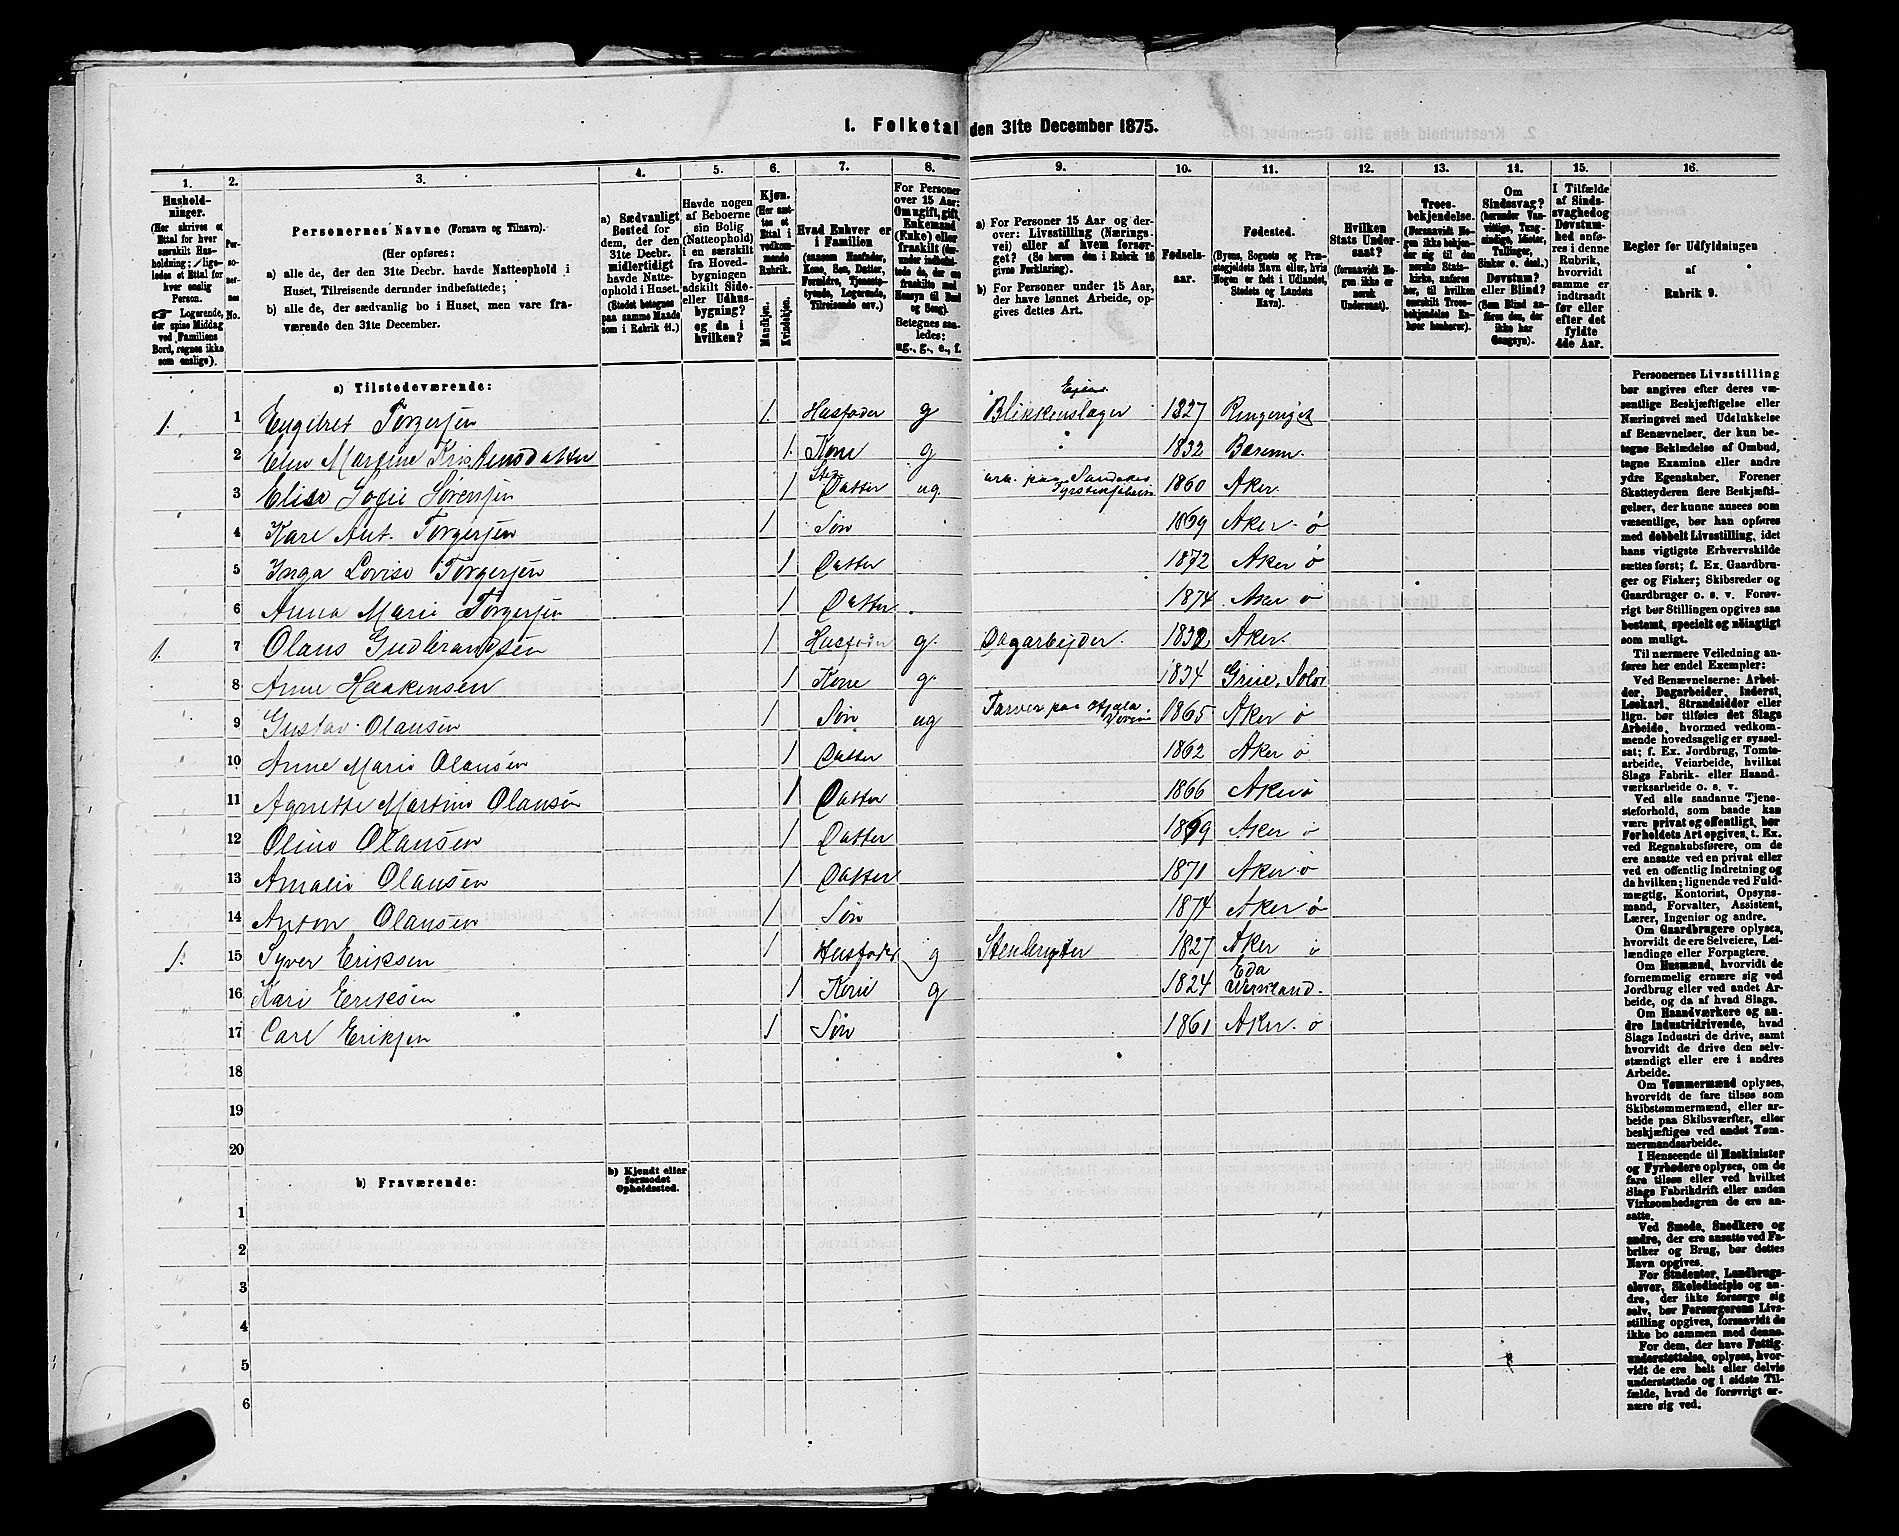 1. Folketal den 31te December 1875.
1. 2. 3. 4. 5. 6. 7. 8. 9. 10. 11. 12. 13. 14. 15. 16.
Hushold-
ninger.
(Her skrives et
Ettal for hver
særskilt Hus-
holdning; lige-
ledes et Ettal for
hver enslig
Person.
☞ Logerende,
der spise Middag
ved Familiens
Bord, regnes ikke
som enslige).
Per-
so-
ner-
nes
No.
Personernes Navne (Fornavn og Tilnavn).
(Her opføres:
a) alle de, der den 31te Decbr. havde Natteophold i
Huset, Tilreisende derunder indbefattede;
b) alle de, der sædvanlig bo i Huset, men vare fra-
værende den 31te December.
a) Sædvanligt
Bosted for
dem, der den
31te Decbr.
midlertidigt
havde Natte-
ophold i Huset.
(Stedet betegnes
paa samme Maade
som i Rubrik 11.)
Havde nogen
af Beboerne
sin Bolig
(Natteophold)
i en særskilt
fra Hoved-
bygningen
adskilt Side-
eller Udhus-
bygning?
og da i
hvilken?
Kjøn.
(Her sæt-
tes et
Ettal i
vedkom-
mende
Rubrik.
Mandkjøn.
Kvindekjøn.
Hvad Enhver er
i Familien
(saasom Husfader,
Kone, Søn, Datter,
Forældre, Tjeneste-
tyende, Logerende,
Tilreisende osv.)
For Personer
over 15 Aar:
Om ugift, gift,
Enkemand
(Enke) eller
fraskilt
Betegnes saa-
ledes:
ug., g., e., f.
a) For Personer 15 Aar og der-
over: Livsstilling (Nærings-
vei) eller af hvem forsør-
get? (Se herom den i Rubrik 16
givne Forklaring).
b) For Personer under 15 Aar,
der have lønnet Arbeide, op-
gives dettes Art.
Fødsels-
aar.
Fødested.
(Byens, Sognets og Præ-
stegjeldets Navn eller, hvis
Nogen er født i Udlandet,
Stedets og Landets
Navn).
Hvilken
Stats Under-
saat?
(forsaavidt No-
gen ikke er
norsk
Undersaat).
Troes-
bekjendelse.
(Forsaavidt No-
gen ikke bekjen-
der sig til den
norske Stats-
kirke, anføres,
til hvilken
særskilt Troes-
bekjendelse En-
hver henhører).
Om
Sindssvag?
(herunder Van-
vittige, Tung-
sindige, Idioter,
Tullinger,
Sinker o. desl.)
Døvstum?
eller Blind?
(Som Blind an-
føres den, der
ikke har
Gangsyn).
I Tilfælde
af Sinds-
svaghed og
Døvstum-
hed anfø-
res i denne
Rubrik,
hvorvidt
samme er
indtraadt
før eller
efter det
fyldte
4de Aar.
Regler for Udfyldningen
af
Rubrik 9.
a) Tilstedeværende:
1. 1 Engebret Torgersen 1 Husfader g Eier Blikkenslager 1827 Ringeriget
2 Elen Martine Kristensdatter 1 Kone g 1832 Bærum
3 Elise Sofie Sørensen 1 Sted Datter ug. arb. paa Sandakes Fyrstikfabrik 1860 Aker.
4 Karl Ant. Torgersen 1 Søn 1869 Aker ø
5 Inga Lovise Torgersen 1 Datter 1872 Aker ø
6 Anna Marie Torgersen 1 Datter 1874 Aker ø
1. 7 Olaus Gudbrandsen 1 Husfader g. Dagarbejder. 1832 Aker.
8 Anne Haakensen 1 Kone g. 1834 Grue, Solør
9 Gustav Olausen 1 Søn ug Farver paa Hjula Væveri 1865 Aker ø
10 Anne Marie Olausen 1 Datter 1862 Aker ø
11 Agnette Martine Olausen 1 Datter 1866 Aker ø
12 Oline Olausen 1 Datter 1869 Aker ø
13 Amalie Olausen 1 Datter 1871 Aker ø
14 Anton Olausen 1 Søn 1874 Aker ø
1. 15 Syver Eriksen 1 Husfader g Stenbryter 1827 Aker ø
16 Kari Eriksen 1 Kone g 1824 Eda Vermland.
17 Carl Eriksen 1 Søn 1861 Aker ø
18
19
20
b) Fraværende:
b) Kjendt eller
formodet
Opholdssted.
1
2
3
4
5
6
Personernes Livsstilling
bør angives efter deres væ-
sentlige Beskjæftigelse eller
Næringsvei med Udelukkelse
af Benævnelser, der kun be-
tegne Beklædelse af Ombud,
tagne Examina eller andre
ydre Egenskaber. Forener
Skatteyderen flere Beskjæfti-
gelser, der kunne ansees som
væsentlige, bør han opføres
med dobbelt Livsstilling, idet
hans vigtigste Erhvervskilde
sættes først; f. Ex. Gaardbru-
ger og Fisker; Skibsreder og
Gaardbruger o. s. v. Forøv-
rigt bør Stillingen opgives saa
bestemt, specielt og nøiagtigt
som muligt.
Til nærmere Veiledning an-
føres her endel Exempler:
Ved Benævnelserne: Arbei-
der, Dagarbeider, Inderst,
Løskarl, Strandsidder eller
lign. bør tilføies det Slags
Arbeide, hvormed vedkom-
mende hovedsagelig er syssel-
sat; f. Ex. Jordbrug, Tomte-
arbeide, Veiarbeide, hvilket
Slags Fabrik- eller Haand-
værksarbeide o. s. v.
Ved alle saadanne Tjene-
steforhold, som baade kan
være privat og offentligt, bør
Forholdets Art opgives, t. Ex.
ved Regnskabsførere, om de
ere ansatte ved en privat eller
ved en offentlig Indretning og
da hvilken; lignende ved Fuld-
mægtig, Kontorist, Opsyns-
mand, Forvalter, Assistent,
Lærer, Ingeniør og andre.
Om Gaardbrugere oplyses,
hvorvidt de ere Selveiere, Lei-
lændinge eller Forpagtere.
Om Husmænd, hvorvidt de
fornemmelig ernære sig ved
Jordbrug eller ved andet Ar-
beide, og da af hvad Slags.
Om Haandværkere og an-
dre Industridrivende, hvad
Slags Industri de drive, samt
hvorvidt de drive den selv-
stændigt eller ere i andres
Arbeide.
Om Tømmermænd oplyses,
hvorvidt de fare tilsøs som
Skibstømmermænd, eller ar-
beide paa Skibsværfter, eller
beskjæftiges ved andet Tøm-
mermandsarbeide.
I Henseende til Maskinister
og Fyrbødere oplyses, om de
fare tilsøs eller ved hvilket
Slags Fabrikdrift eller anden
Virksomhedsgren de ere an-
satte.
Ved Smede, Snedkere og
andre, der ere ansatte ved Fa-
briker og Brug, bør dettes
Navn opgives.
For Studenter, Landbrugs-
elever, Skoledisciple og an-
dre, der ikke forsørge sig
selv, bør Forsørgerens Livs-
stilling opgives, forsaavidt de
ikke bo sammen med denne.
For dem, der have Fattig-
understøttelse, oplyses, hvor-
vidt de ere helt eller delvis
understøttede og i sidste Til-
fælde, hvad de forøvrigt er-
nære sig ved.